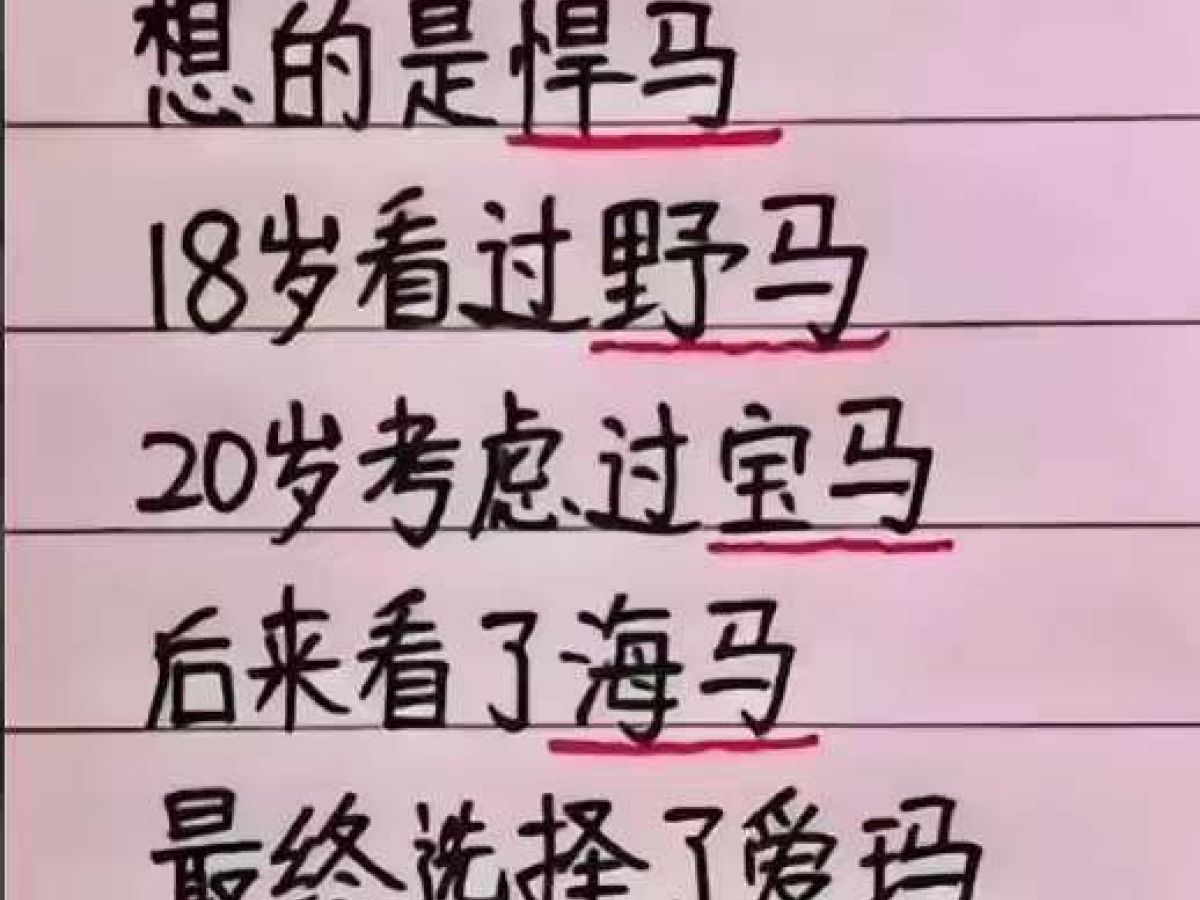 想的是悍马
18岁看过野马
20岁考虑过宝马
后来看了海马
最终选择了爱玛